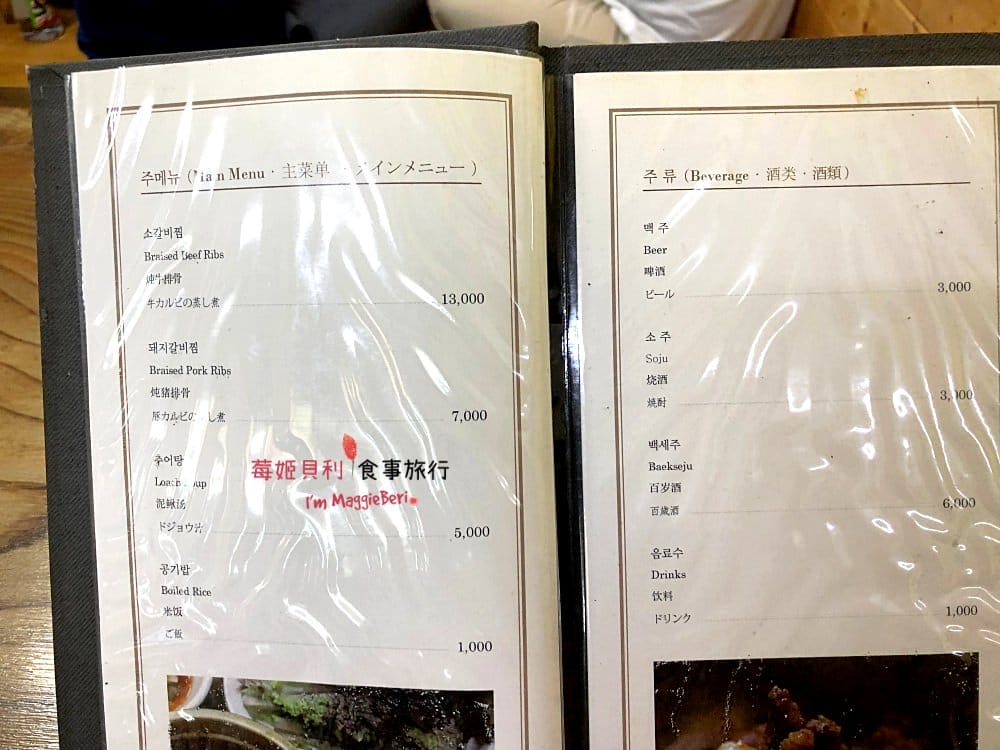 주메뉴 (Main Menu · 主菜单 · メインメニュー)
소갈비찜
Braised Beef Ribs
炖牛排骨
牛カルビの蒸し煮 13,000
돼지갈비찜
Braised Pork Ribs
炖猪排骨
豚カルビの蒸し煮 7,000
추어탕
Loach Soup
泥鳅汤
ドジョウ汁 5,000
공기밥
Boiled Rice
米饭
ご飯 1,000
莓姬貝利 食事旅行
I'm MaggieBeri.
주 류 (Beverage · 酒类 · 酒類)
맥 주
Beer
啤酒
ビール 3,000
소 주
Soju
烧酒
焼酎 3,000
백세주
Baekseju
百岁酒
百歳酒 6,000
음료수
Drinks
饮料
ドリンク 1,000